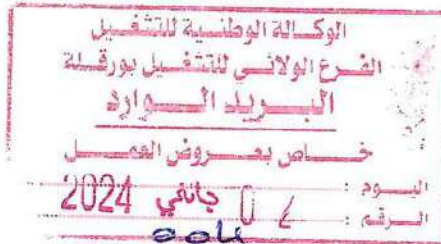 الوكالة الوطنية للتشغيل
الفرع الولائي للتشغيل بورقلة
البريد الوارد
خاص بعروض العمل
اليوم : 0 جانفي 2024
الرقم :